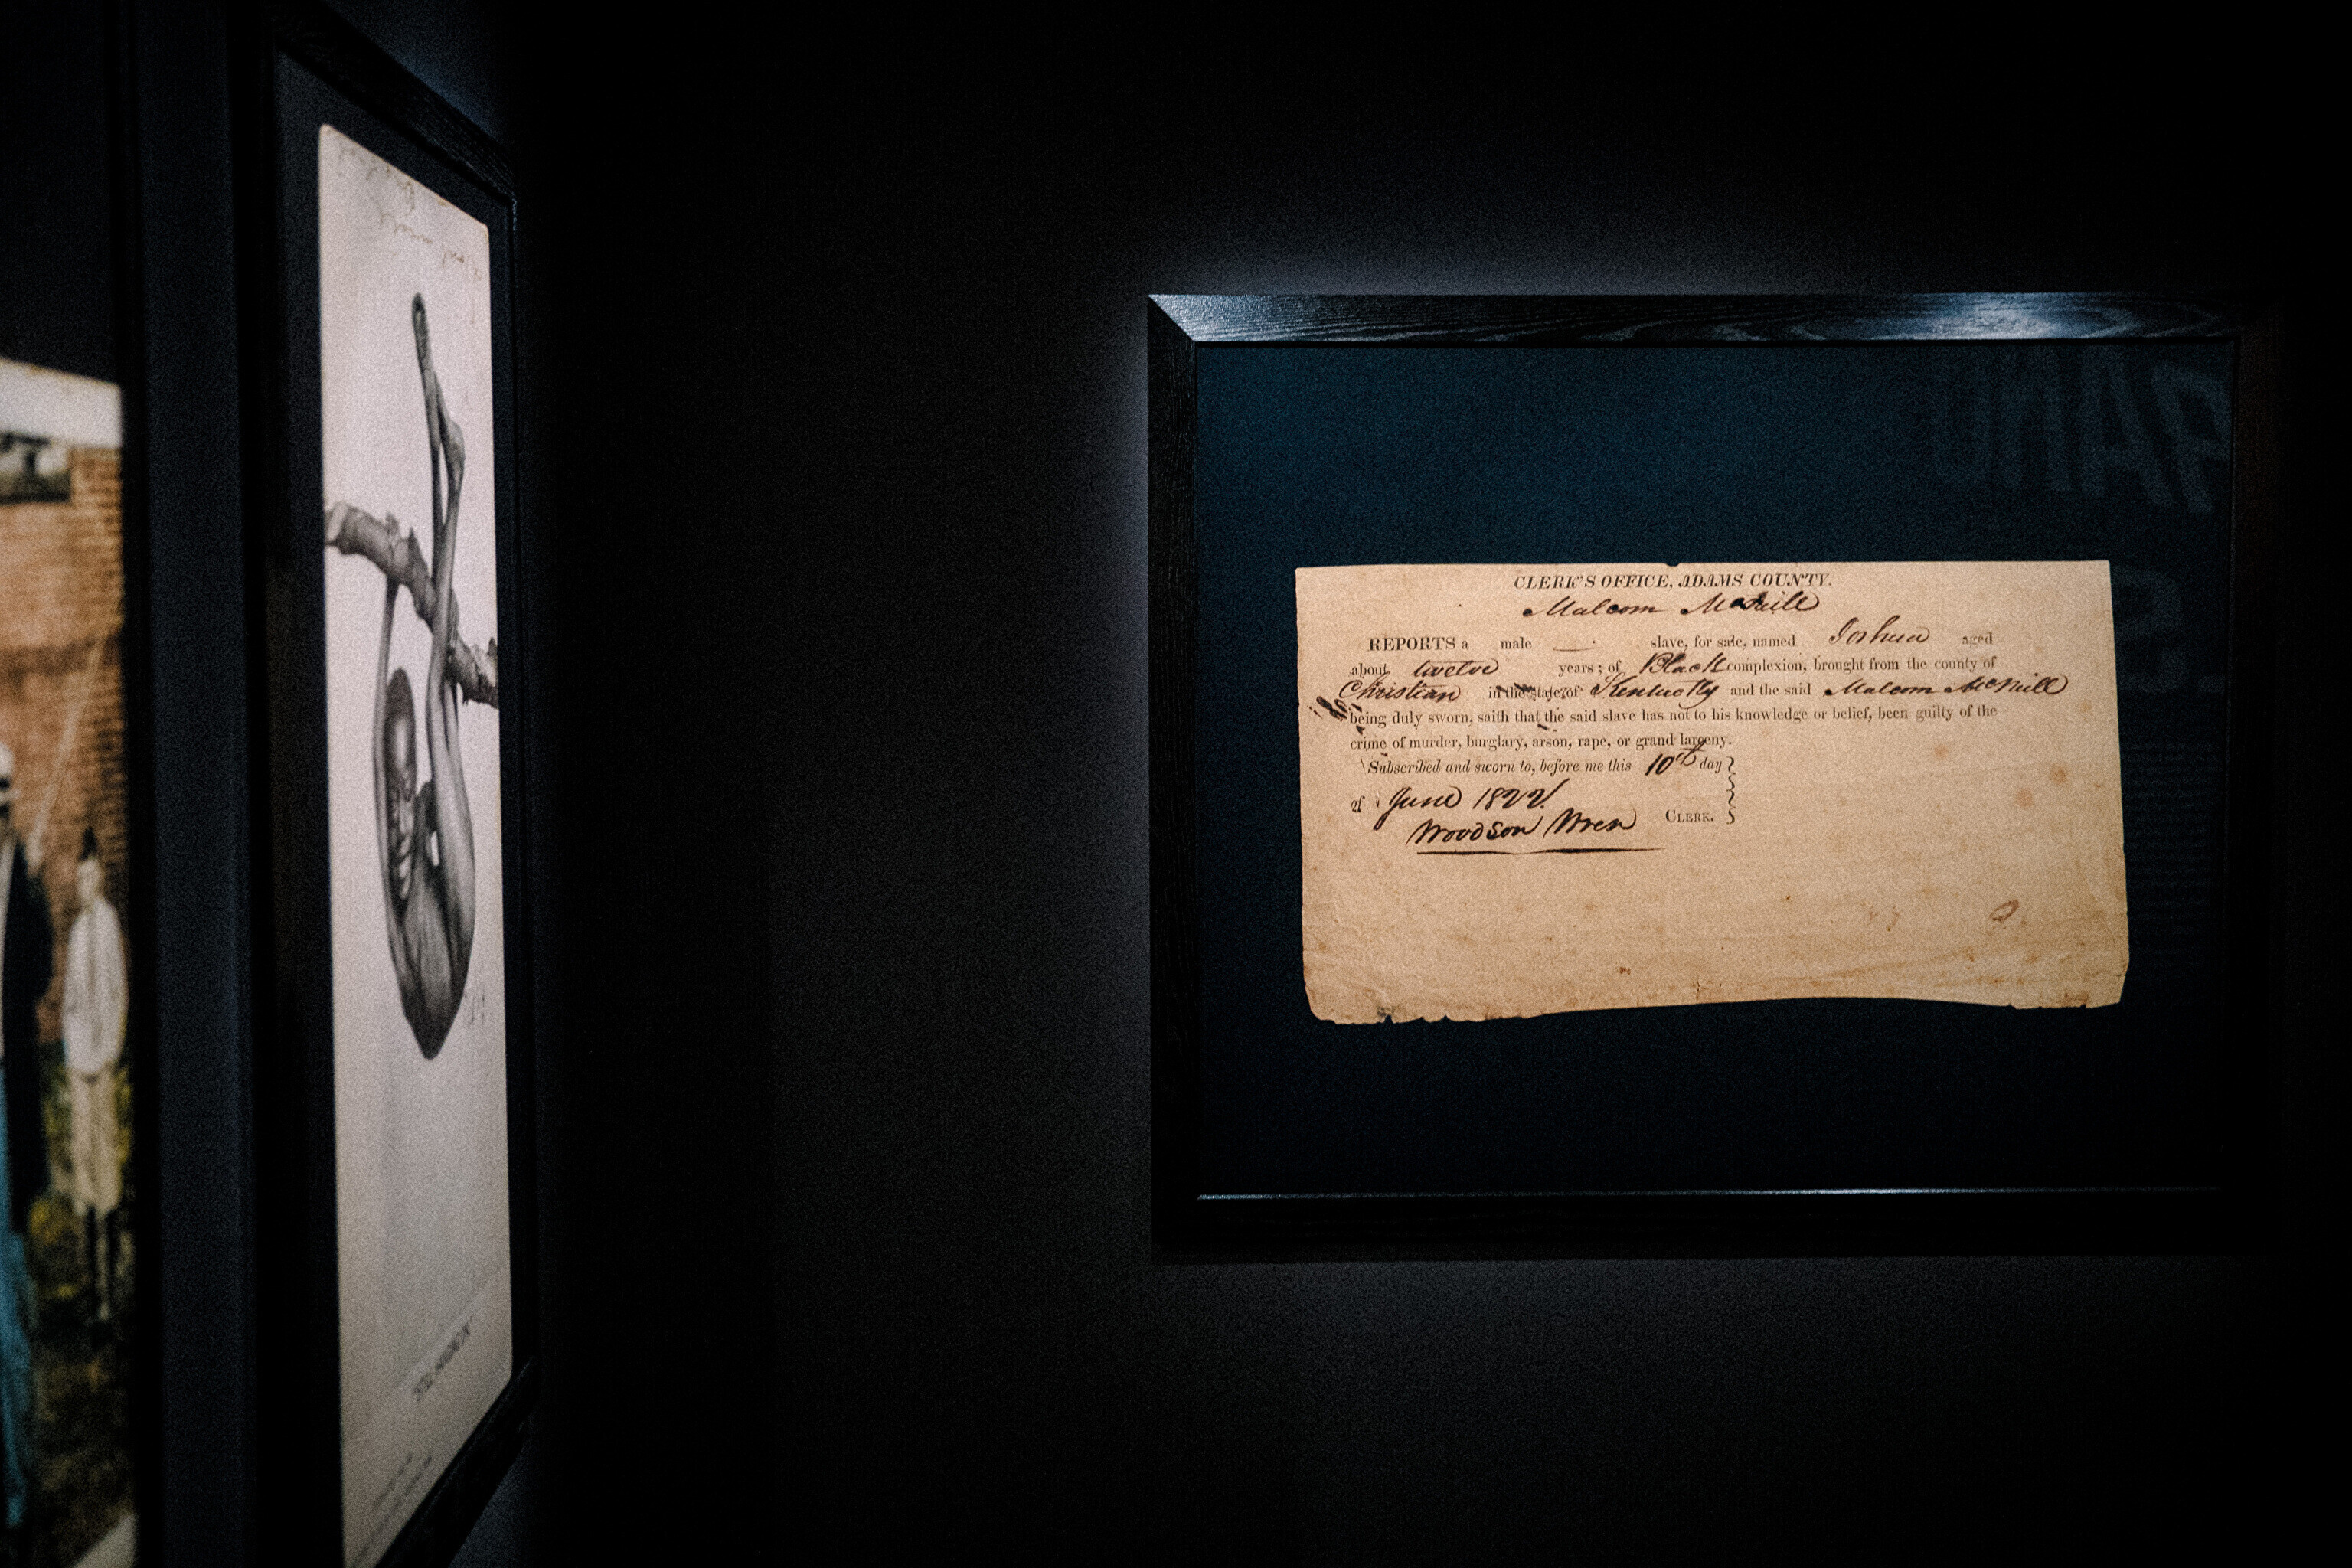 CLERK'S OFFICE, ADAMS COUNTY.
Malcom McNeill
REPORTS a male slave, for sale, named Joshua aged
about twelve years; of Black complexion, brought from the county of
Christian in the state of Kentucky and the said Malcom McNeill
being duly sworn, saith that the said slave has not to his knowledge or belief, been guilty of the
crime of murder, burglary, arson, rape, or grand larceny.
Subscribed and sworn to, before me this 10th day
of June 1822.
Woodson Wren CLERK.